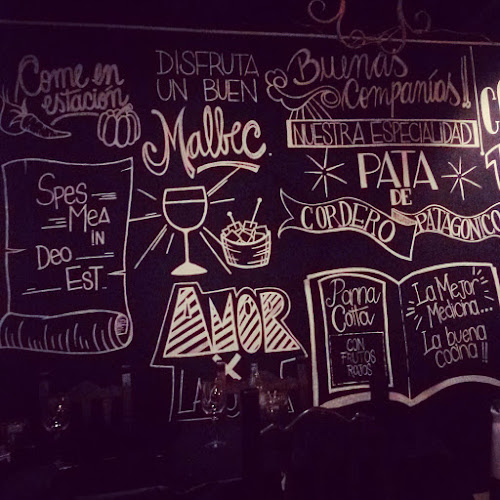 Come en
estación
DISFRUTA
UN BUEN
Malbec.
Buenas
Companías!!
NUESTRA ESPECIALIDAD
PATA
DE
CORDERO PATAGONICO
Spes
Mea
in
Deo
Est.
AMOR
X
Panna
Cotta
CON
FRUTOS
ROJOS
La Mejor
Medicina...
La buena
cocina!!